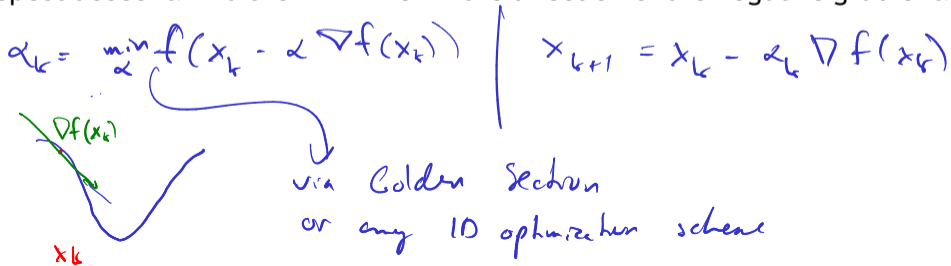 α_k = min_α f(x_k - α ∇f(x_k))
x_{k+1} = x_k - α_k ∇f(x_k)
∇f(x_k)
via Golden Section
or any 1D optimization scheme
x_k